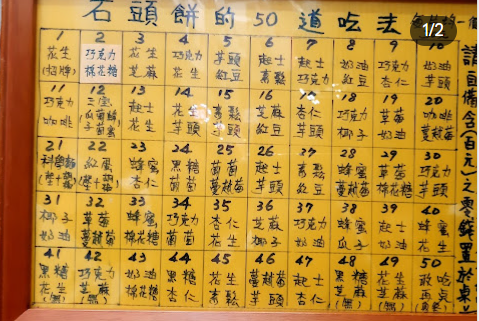 石頭餅的50道吃法
1/2
1 花生(招牌)
2 巧克力 棉花糖
3 花生 芝麻
4 巧克力 花生
5 芋頭 紅豆
6 起士 肉鬆
7 起士 巧克力
8 奶油 紅豆
9 巧克力 杏仁
10 奶油 芋頭
11 巧克力 咖啡
12
13 起士 花生
14 花生 芋頭
15 肉鬆 芋頭
16 芝麻 紅豆
17 杏仁 芋頭
18 巧克力 椰子
19 草莓 奶油
20 咖啡 蔓越莓
21
22
23 蜂蜜 杏仁
24 黑糖 葡萄
25 葡萄 蔓越莓
26 起士 芋頭
27 肉鬆 紅豆
28 蜂蜜 蔓越莓
29 草莓 棉花糖
30 巧克力 芋頭
31 椰子 奶油
32 草莓 蔓越莓
33 蜂蜜 棉花糖
34 巧克力 葡萄
35 杏仁 花生
36 芝麻 椰子
37 巧克力 奶油
38 蜂蜜 瓜子
39 起士 奶油
40 蜂蜜 花生
41 黑糖 花生
42 巧克力 芝麻
43 奶油 棉花糖
44 黑糖 杏仁
45 花生 肉鬆
46 蔓越莓 芋頭
47 起士 杏仁
48 黑糖 芝麻
49 花生 芝麻
50
請自備含(百元)之零錢置於桌